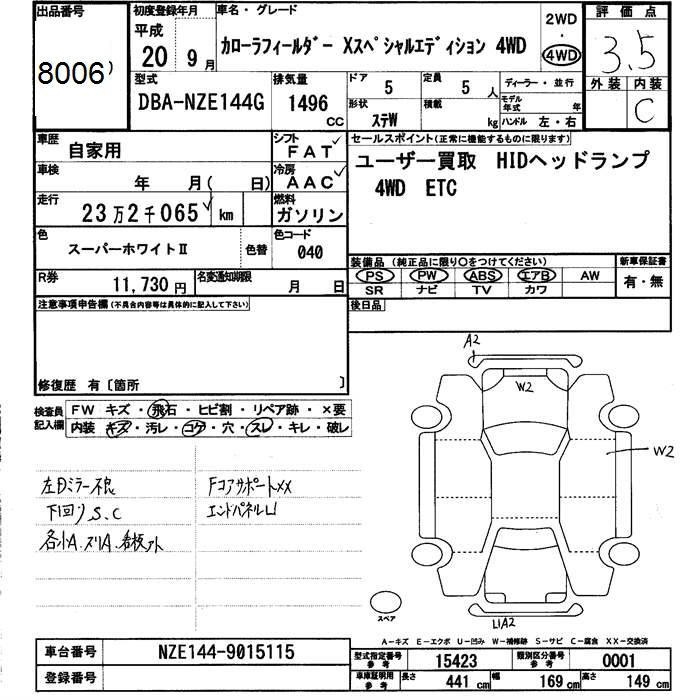 出品番号
8006)
初度登録年月
平成
20 9月
車名・グレード
カローラフィールダー XスペシャルエディションI 4WD
2WD
・
4WD
評価点
3.5
外装 内装
C
型式
DBA-NZE144G
排気量
1496
CC
ドア
5
定員
5人
形状
ステW
積載
kg
ディーラー・並行
モデル年式 年
ハンドル 左・右
車歴
自家用
シフト
FAT
車検
年 月( 日)
冷房
AAC
走行
23万2千065 km
燃料
ガソリン
色
スーパーホワイトⅡ
色替
色コード
040
R券
11,730円
名変通知期限
月 日
セールスポイント(正常に機能するものに限ります)
ユーザー買取 HIDヘッドランプ
4WD ETC
装備品(純正品に限り○をつけてください)
PS PW ABS エアB AW
SR ナビ TV カワ
新車保証書
有・無
後日品
注意事項申告欄(不具合内容等は具体的に記入して下さい)
修復歴 有〔箇所 〕
検査員記入欄
FW キズ・飛石・ヒビ割・リペア跡・×要
内装・キズ・汚レ・コゲ・穴・スレ・キレ・破レ
左Dミラー不良
下回りS.C
各小A.スリA.看板アト
Fコアサポートxx
エンドパネルU
A2
W2
W2
U1A2
スペア
A-キズ E-エクボ U-凹み W-補修跡 S-サビ C-腐食 XX-交換済
車台番号
NZE144-9015115
登録番号
型式指定番号
参考
15423
類別区分番号
参考
0001
車庫証明用
参考
長さ
441 cm
幅
169 cm
高さ
149 cm